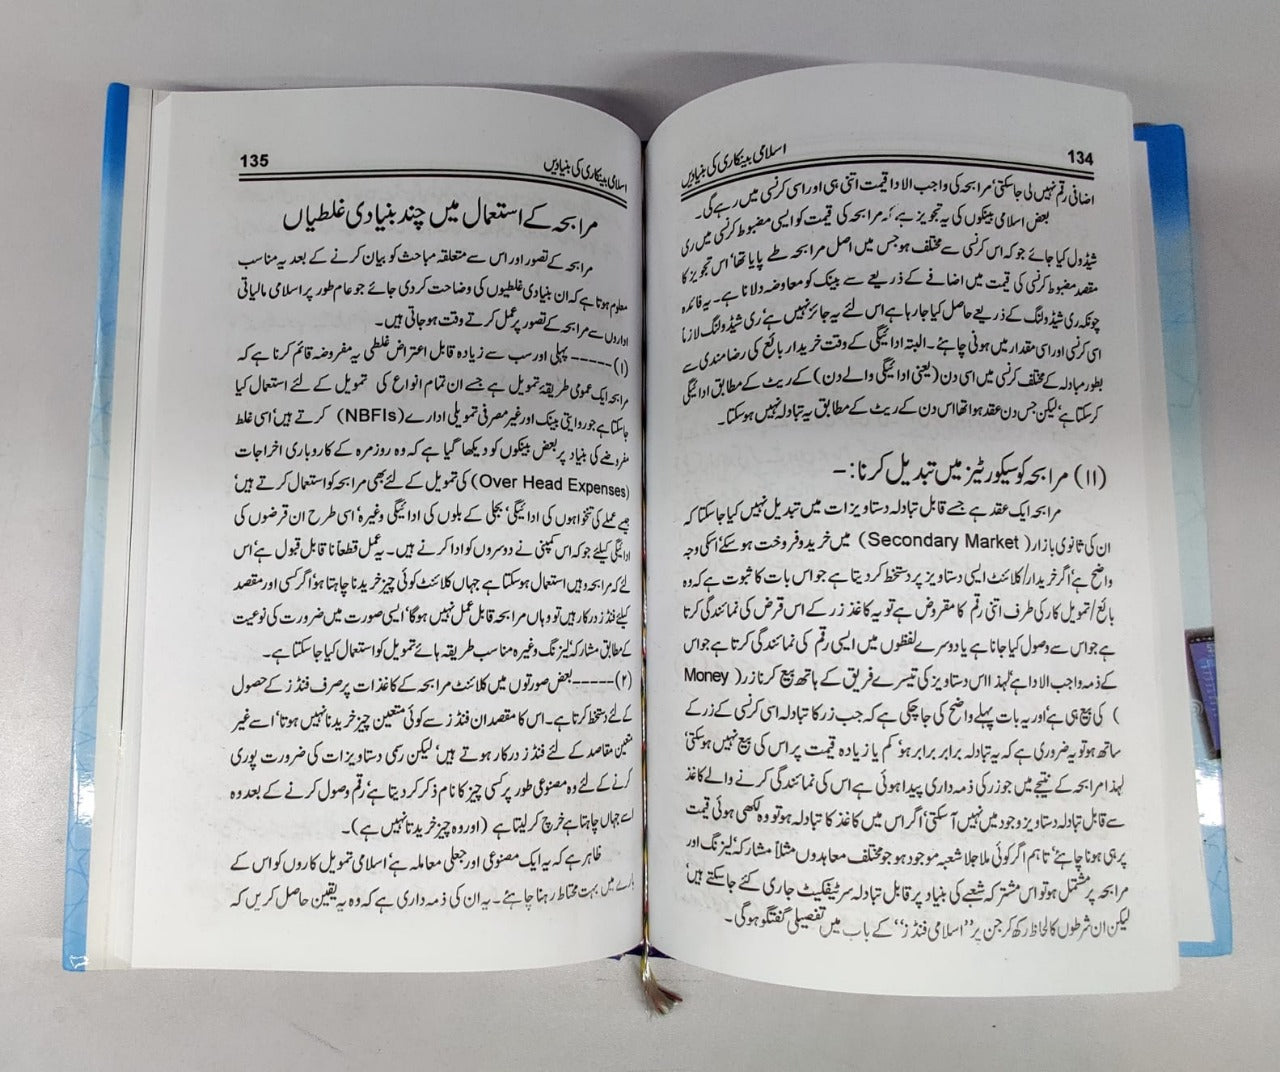 134
اسلامی بینکاری کی بنیادیں
اضافی رقم نہیں لی جاسکتی' مرابحہ کی واجب الادا قیمت اتنی ہی اور اسی کرنسی میں رہے گی۔
بعض اسلامی بینکوں کی یہ تجویز ہے کہ مرابحہ کی قیمت کو ایسی مضبوط کرنسی میں ری
شیڈول کیا جائے جو کہ اس کرنسی سے مختلف ہو جس میں اصل مرابحہ طے پایا تھا' اس تجویز کا
مقصد مضبوط کرنسی کی قیمت میں اضافے کے ذریعے سے بینک کو معاوضہ دلانا ہے۔ یہ فائدہ
چونکہ ری شیڈولنگ کے ذریعے حاصل کیا جارہا ہے اس لئے یہ جائز نہیں ہے' ری شیڈولنگ لازما
اسی کرنسی اور اسی مقدار میں ہونی چاہئے۔ البتہ ادائیگی کے وقت خریدار بائع کی رضامندی سے
بطور مبادلہ کے مختلف کرنسی میں اسی دن (یعنی ادائیگی والے دن) کے ریٹ کے مطابق ادائیگی
کرسکتا ہے' لیکن جس دن عقد ہوا تھا اس دن کے ریٹ کے مطابق یہ تبادلہ نہیں ہوسکتا۔
(۱۱) مرابحہ کو سیکورٹیز میں تبدیل کرنا:-
مرابحہ ایک عقد ہے جسے قابل تبادلہ دستاویزات میں تبدیل نہیں کیا جاسکتا کہ
ان کی ثانوی بازار( Secondary Market) میں خرید و فروخت ہوسکے' اسکی وجہ
واضح ہے' اگر خریدار/کلائنٹ ایسی دستاویز پر دستخط کر دیتا ہے جو اس بات کا ثبوت ہے کہ وہ
بائع/تمویل کار کی طرف اتنی رقم کا مقروض ہے تو یہ کاغذ زر کے اس قرض کی نمائندگی کرتا
ہے جو اس سے وصول کیا جانا ہے یا دوسرے لفظوں میں ایسی رقم کی نمائندگی کرتا ہے جو اس
کے ذمہ واجب الادا ہے' لہٰذا اس دستاویز کی تیسرے فریق کے ہاتھ بیع کرنا زر( Money
) کی بیع ہی ہے' اور یہ بات پہلے واضح کی جاچکی ہے کہ جب زر کا تبادلہ اسی کرنسی کے زر کے
ساتھ ہو تو یہ ضروری ہے کہ یہ تبادلہ برابر برابر ہو' کم یا زیادہ قیمت پر اس کی بیع نہیں ہوسکتی'
لہٰذا مرابحہ کے نتیجے میں جو زر کی ذمہ داری پیدا ہوئی ہے اس کی نمائندگی کرنے والے کاغذ
سے قابل تبادلہ دستاویز وجود میں نہیں آسکتی' اگر اس میں کاغذ کا تبادلہ ہو تو وہ لکھی ہوئی قیمت
پر ہی ہونا چاہئے' تاہم اگر کوئی ملا جلا شعبہ موجود ہو جو مختلف معاہدوں مثلاً مشارکہ' لیزنگ اور
مرابحہ پر مشتمل ہو تو اس مشترکہ شعبے کی بنیاد پر قابل تبادلہ سرٹیفکیٹ جاری کئے جاسکتے ہیں'
لیکن ان شرطوں کا لحاظ رکھ کر جن پر ''اسلامی فنڈز'' کے باب میں تفصیلی گفتگو ہوگی۔
اسلامی بینکاری کی بنیادیں
135
مرابحہ کے استعمال میں چند بنیادی غلطیاں
مرابحہ کے تصور اور اس سے متعلقہ مباحث کو بیان کرنے کے بعد یہ مناسب
معلوم ہوتا ہے کہ ان بنیادی غلطیوں کی وضاحت کر دی جائے جو عام طور پر اسلامی مالیاتی
اداروں سے مرابحہ کے تصور پر عمل کرتے وقت ہوجاتی ہیں۔
(۱)-----پہلی اور سب سے زیادہ قابل اعتراض غلطی یہ مفروضہ قائم کرنا ہے کہ
مرابحہ ایک عمومی طریقۂ تمویل ہے جسے ان تمام انواع کی تمویل کے لئے استعمال کیا
جاسکتا ہے جو روایتی بینک اور غیر مصرفی تمویلی ادارے (NBFIs) کرتے ہیں' اسی غلط
مفروضے کی بنیاد پر بعض بینکوں کو دیکھا گیا ہے کہ وہ روزمرہ کے کاروباری اخراجات
(Over Head Expenses) کی تمویل کے لئے بھی مرابحہ کو استعمال کرتے ہیں'
جیسے عملے کی تنخواہوں کی ادائیگی' بجلی کے بلوں کی ادائیگی وغیرہ' اسی طرح ان قرضوں کی
ادائیگی کیلئے جو کہ اس کمپنی نے دوسروں کو ادا کرنے ہیں۔ یہ عمل قطعاً ناقابل قبول ہے' اس
لئے کہ مرابحہ وہیں استعمال ہوسکتا ہے جہاں کلائنٹ کوئی چیز خریدنا چاہتا ہو' اگر کسی اور مقصد
کیلئے فنڈز درکار ہیں تو وہاں مرابحہ قابل عمل نہیں ہوگا' ایسی صورت میں ضرورت کی نوعیت
کے مطابق مشارکہ' لیزنگ وغیرہ مناسب طریقہ ہائے تمویل کو استعمال کیا جاسکتا ہے۔
(۲)-----بعض صورتوں میں کلائنٹ مرابحہ کے کاغذات پر صرف فنڈز کے حصول
کے لئے دستخط کرتا ہے۔ اس کا مقصد ان فنڈز سے کوئی متعین چیز خریدنا نہیں ہوتا' اسے غیر
متعین مقاصد کے لئے فنڈز درکار ہوتے ہیں' لیکن رسمی دستاویزات کی ضرورت پوری
کرنے کے لئے وہ مصنوعی طور پر کسی چیز کا نام ذکر کر دیتا ہے' رقم وصول کرنے کے بعد وہ
اسے جہاں چاہتا ہے خرچ کر لیتا ہے (اور وہ چیز خریدتا نہیں ہے)۔
ظاہر ہے کہ یہ ایک مصنوعی اور جعلی معاملہ ہے' اسلامی تمویل کاروں کو اس کے
بارے میں بہت محتاط رہنا چاہئے۔ یہ ان کی ذمہ داری ہے کہ وہ یہ یقین حاصل کریں کہ